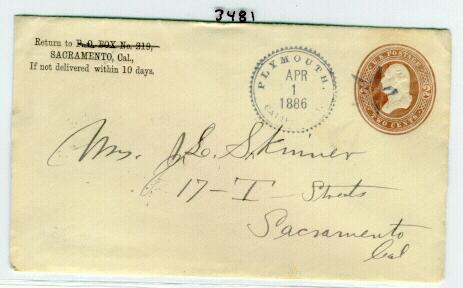 3481
Return to P. O. BOX No. 219,
SACRAMENTO, Cal.,
If not delivered within 10 days.
PLYMOUTH,
APR
1
1886
U.S. POSTAGE
TWO CENTS
2 2
Mrs. J. E. Skinner
17 - I - Streets
Sacramento
Cal